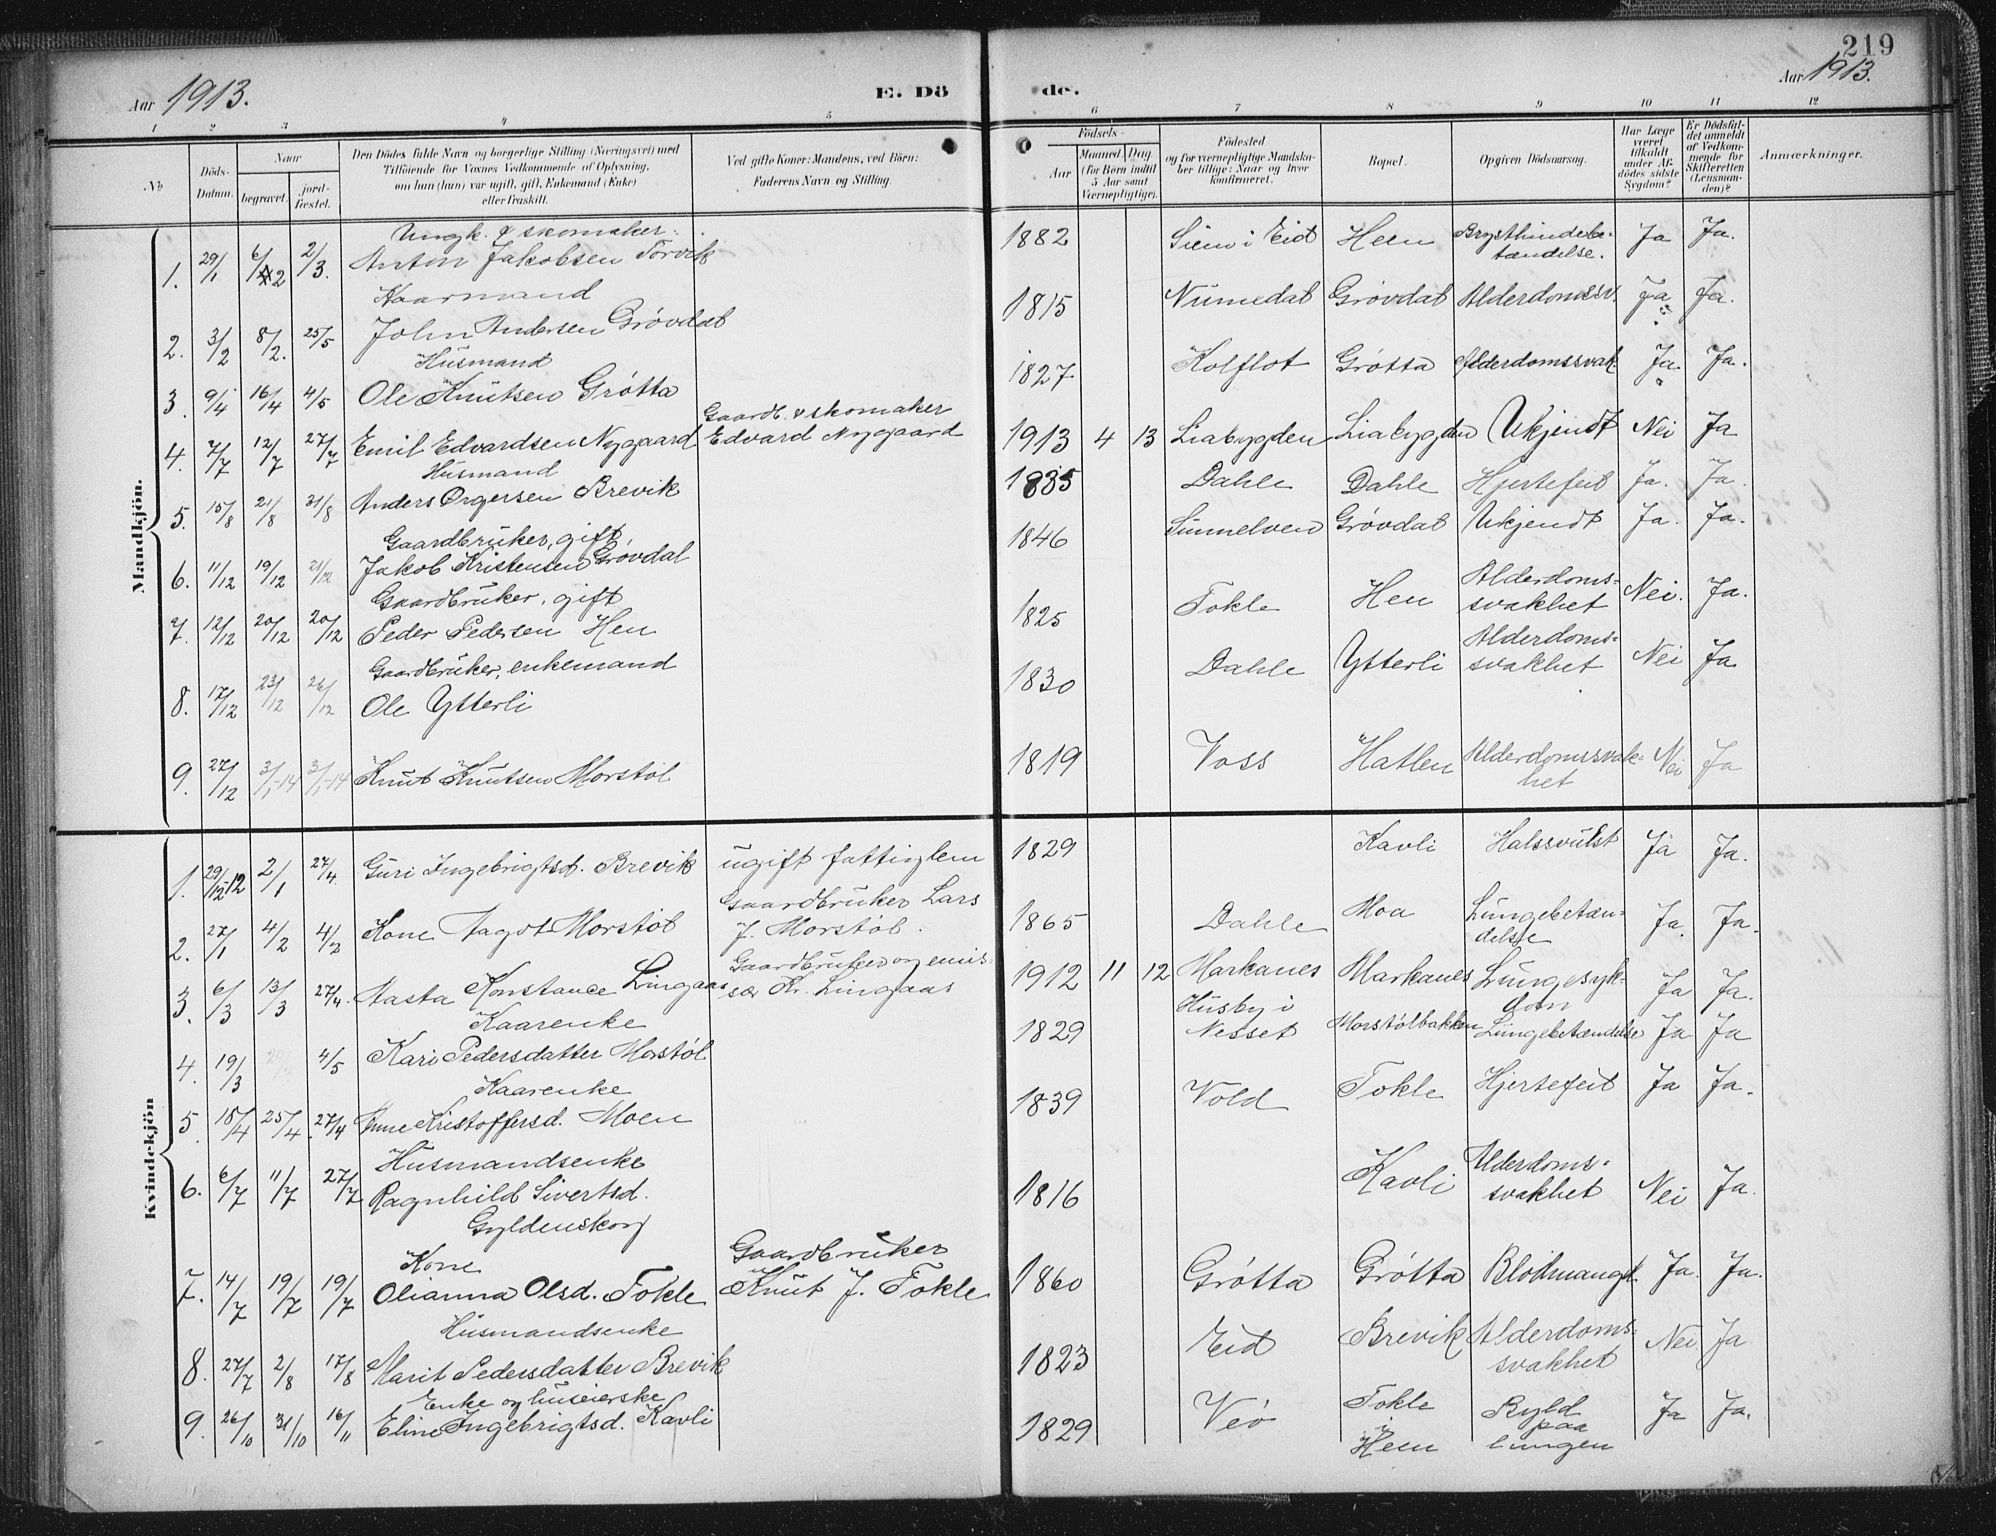 219
Aar 1913.
E. Dö
de.
Aar 1913.
1 2 3 4 5 6 7 8 9 10 11 12
No
Döds-Datum.
Naar
begravet.
jord-fæstet.
Den Dödes fulde Navn og borgerlige Stilling (Næringsvei) med
Tilföiende for Voxnes Vedkommende af Oplysning,
om han (hun) var ugift, gift, Enkemand (Enke)
eller fraskilt.
Ved gifte Koner: Mandens, ved Börn:
Faderens Navn og Stilling.
Födsels-
Aar
Maaned Dag
(for Børn indtil
5 Aar samt
Værnepligtige).
Födested
og for værnepligtige Mandska-
ber tillige: Naar og hvor
konfirmeret.
Bopæl.
Opgiven Dödsaarsag.
Har Læge
været
tilkaldt
under Af-
dödes sidste
Sygdom?
Er Dödsfal-
det anmeldt
af Vedkom-
mende for
Skifteretten
(Lensman-
den)?
Anmærkninger.
Mandkjön.
Ungk. & skomaker
1. 29/1 6/2 2/3. Anton Jakobsen Torvik 1882 Siem i Eid Heen Brysthindebe-
tændelse. Ja Ja.
Kaarmand
2. 3/2 8/2. 25/5 John Andersen Grøvdal 1815 Numedal Grøvdal Alderdomssv. Ja Ja.
Husmand
3. 9/4 16/4 4/5 Ole Knutsen Grøtta 1827 Kolflot Grøtta Alderdomssvak. Ja Ja.
Gaardb. & skomaker
4. 7/7 12/7 27/7 Emil Edvardsen Nygaard Edvard Nygaard 1913 4 13 Liabygden Liabygden Ukjendt Nei Ja
Husmand
5. 15/8 21/8 31/8 Anders Orgersen Brevik 1835 Dahle Dahle Hjertefeil Ja. Ja.
Gaardbruker, gift
6. 11/12 19/12 21/12 Jakob Kristensen Grøvdal 1846 Sunnelven Grøvdal Ukjendt Ja. Ja.
Gaardbruker, gift
7. 12/12 20/12 20/12 Peder Pedersen Hen 1825 Tokle Hen Alderdoms-
svakhet Nei. Ja.
Gaardbruker, enkemand
8. 17/12 23/12 26/12 Ole Ytterli 1830 Dahle Ytterli Alderdoms-
svakhet Nei Ja
9. 27/12 3/1-14 3/1-14 Knut Knutsen Morstøl 1819 Voss Hatlen Alderdomssvak-
het Nei Ja
Kvindekjön
1. 29/12-12 2/1 27/4. Guri Ingebrigtsd. Brevik ugift fattiglem 1829 Kavli Halssvulst Ja Ja.
Gaardbruker Lars
2. 27/1 4/2 4/2 Kone Aagot Morstøl J. Morstøl. 1865 Dahle Moa Lungebetæn-
delse Ja. Ja.
Gaardbruker og emis-
3. 6/3 13/3 27/4. Aasta Konstance Lingaas sær Kr. Lingaas 1912 11 12 Markanes Markanes Lungesyk-
dom Ja Ja.
Kaarenke
4. 19/3 4/5 Kari Pedersdatter Morstøl 1829 Husby i
Nesset Morstølbakken Lungebetændelse Ja Ja
Kaarenke
5. 15/4 25/4 27/4 Anne Kristoffersd. Moen 1839 Vold Tokle Hjertefeil Ja Ja.
Husmandsenke
6. 6/7 11/7 27/7 Ragnhild Sivertsd.
Gyldenskog 1816 Kavli Alderdoms-
svakhet Nei Ja.
Kone Gaardbruker
7. 14/7 19/7 19/7 Olianna Olsd. Tokle Knut J. Tokle 1860 Grøtta Grøtta Blodmangel Ja. Ja.
Husmandsenke
8. 27/7 2/8 17/8 Marit Pedersdatter Brevik 1823 Eid Brevik Alderdoms-
svakhet Nei Ja
Enke og huseierske
9. 26/10 31/10 16/11 Eline Ingebrigtsd. Kavli 1829 Veø Tokle
i
Heen Byld
paa
lungen Ja Ja.